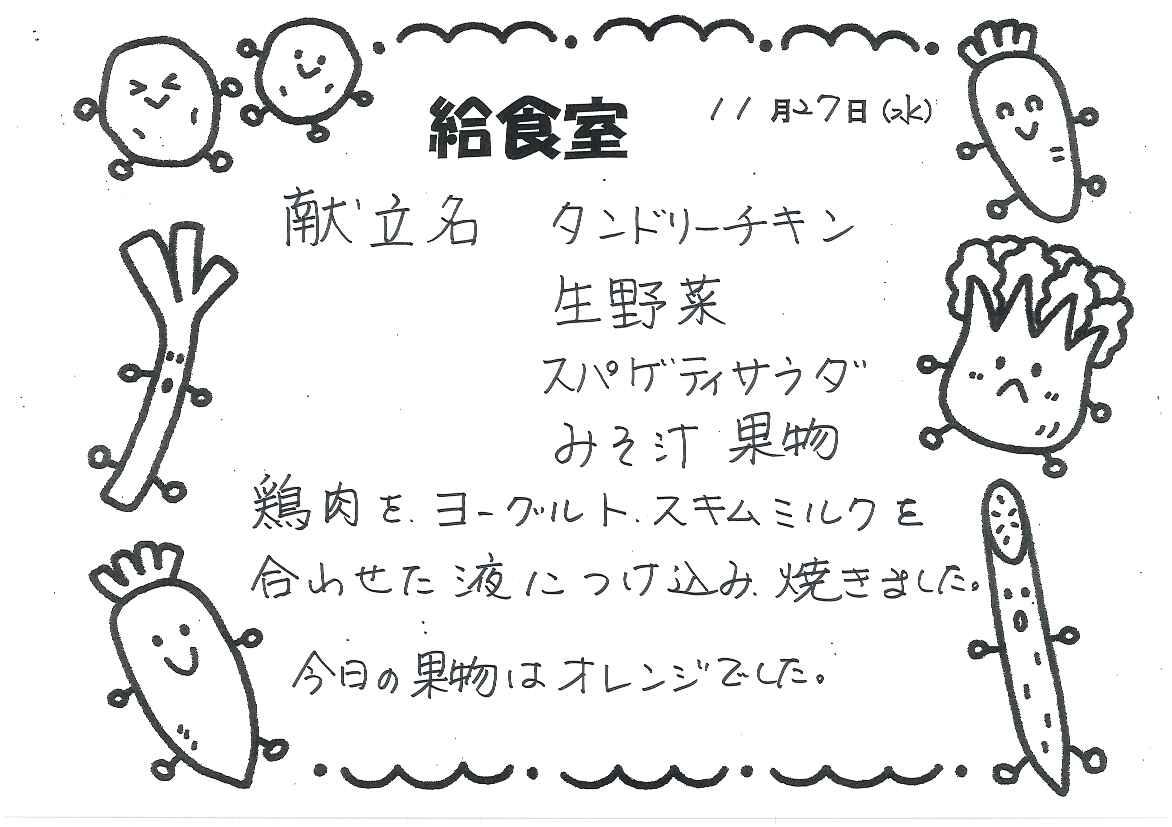 給食室 11月27日(水)
献立名 タンドリーチキン
生野菜
スパゲティサラダ
みそ汁 果物
鶏肉を、ヨーグルト、スキムミルクを
合わせた液につけ込み、焼きました。
今日の果物はオレンジでした。